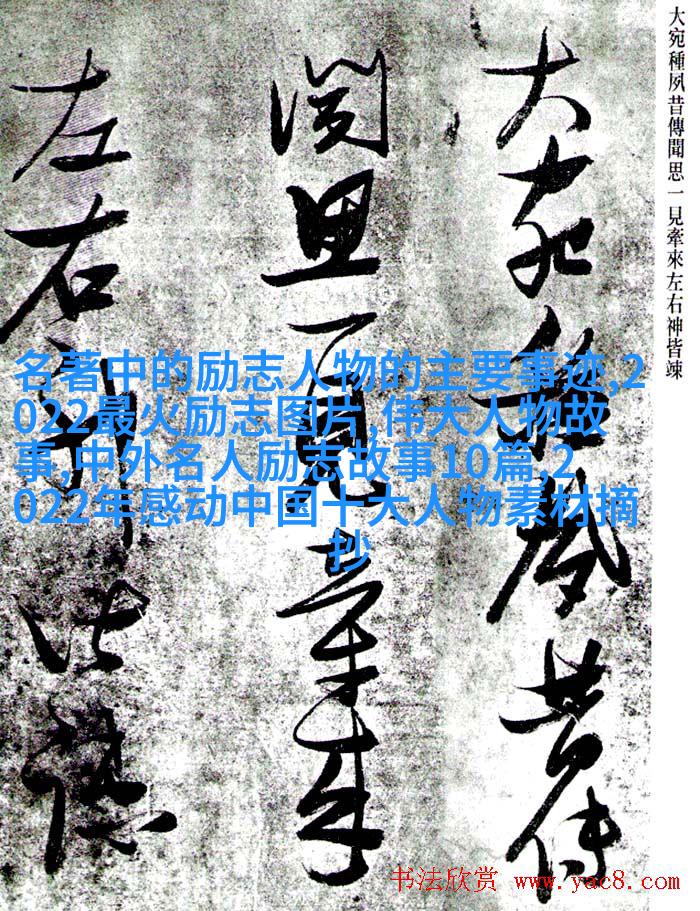 大宛種夙昔傳聞思一見牽來左右神皆竦
大宛種夙昔傳
聞思一見牽來
左右神皆竦
名著中的励志人物的主要事迹,2
022最火励志图片,伟大人物故
事,中外名人励志故事10篇,2
022年感动中国十大人物素材摘
抄
书法欣赏 www.yac8.com